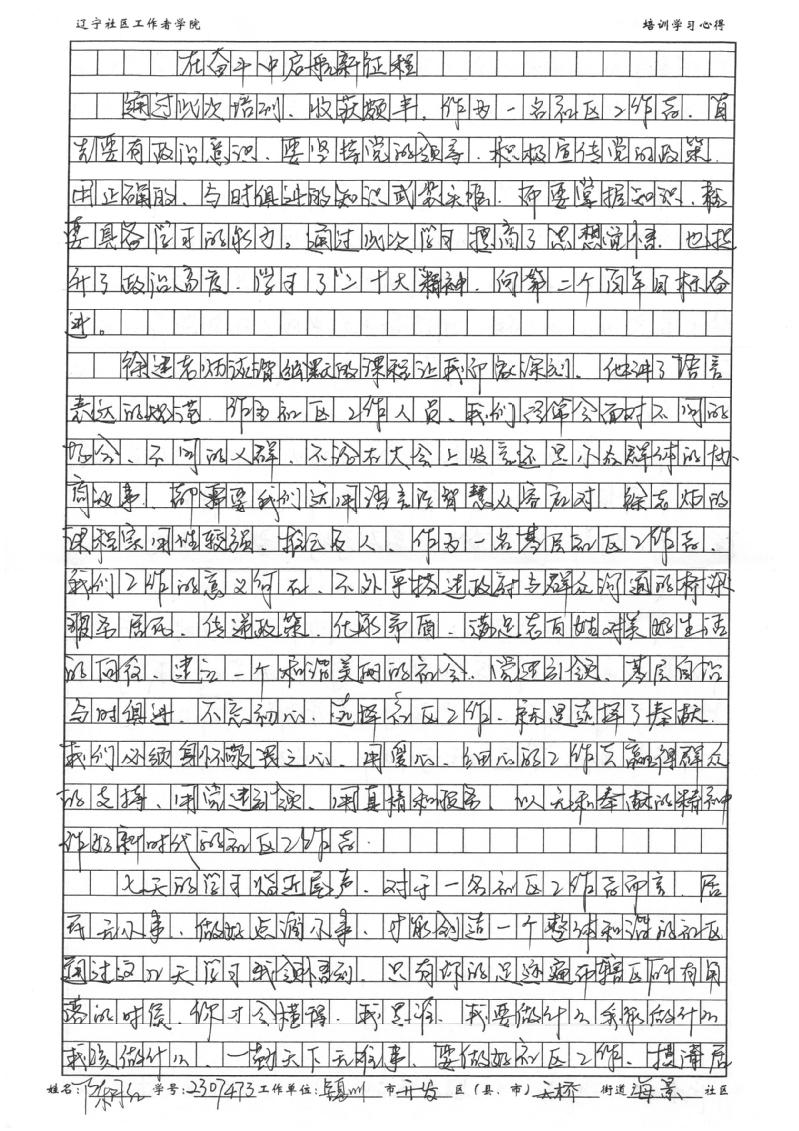 辽宁社区工作者学院 培训学习心得
在奋斗中启航新征程
通过此次培训、收获颇丰，作为一名社区工作者、首
先要有政治意识、要坚持党的领导、积极宣传党的政策
用正确的、与时俱进的知识武装头脑、即要掌握知识、
要具备学习的能力。通过此次学习提高了思想觉悟、也提
升了政治高度、学习了“二十大”精神、向第二个百年目标奋
进。
徐老师诙谐幽默的课程让我印象深刻、他讲了语言
表达的规范、作为社区工作人员、我们经常会面对不同的
场合、不同的人群、不论在大会上发言还是小众群体的协
商议事、都需要我们运用语言性智慧从容应对、徐老师的
课程实用性较强、推己及人、作为一名基层社区工作者、
我们工作的意义何在、不外乎搭建政府与群众沟通的桥梁
服务居民、传递政策、化解矛盾、满足老百姓对美好生活
的向往、建立一个和谐美丽的社会、党建引领、基层自治
与时俱进、不忘初心、选择社区工作、就是选择了奉献、
我们必须身怀敬畏之心、用爱心、细心的工作去赢得群众
的支持、用党建引领、用真情和服务、以无私奉献的精神
作好新时代的社区工作者、
七天的学习临近尾声、对于一名社区工作者而言、居
民无小事、做好点滴小事、才能创造一个整体和谐的社区
通过这几天学习我领悟到、只有你的足迹遍布辖区所有角
落的时候、你才会懂得、我是谁、我要做什么我能做什么
我该做什么、一勤天下无难事、要做好社区工作、摸清居
姓名: 学号:2307473 工作单位:锦州 市 开发 区（县、市）天桥 街道 海景 社区